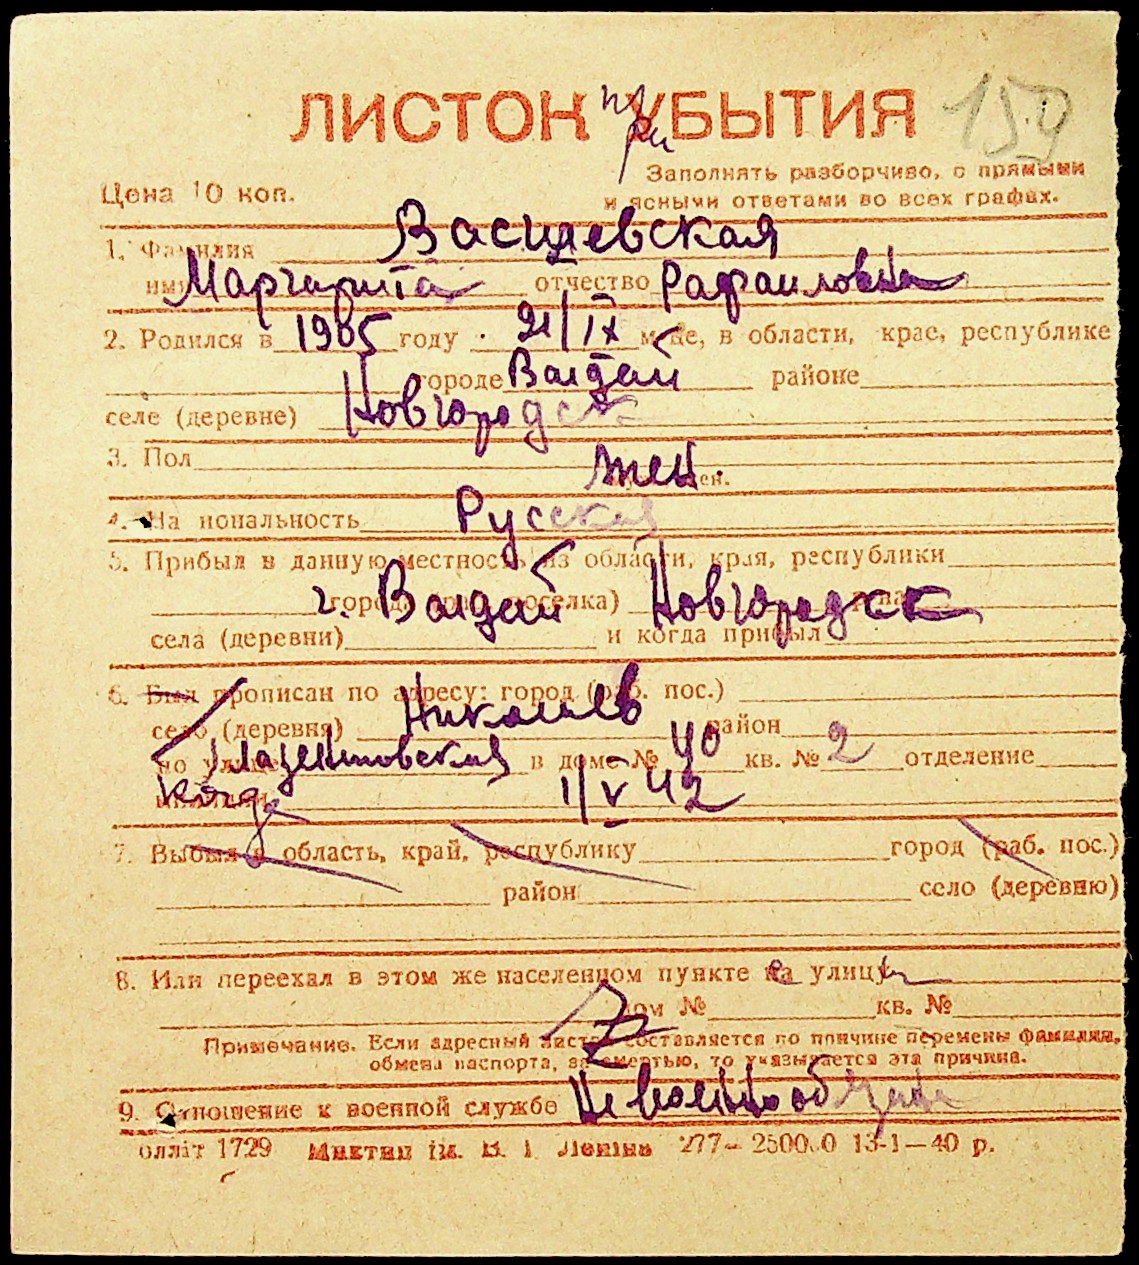 ЛИСТОК УБЫТИЯ
при
159
Цена 10 коп.
Заполнять разборчиво, с прямыми
и ясными ответами во всех графах.
1. Фамилия Василевская
имя Маргарита отчество Рафаиловна
2. Родился в 1905 году 21/IX м-це, в области, крае, республике
городе Валдай районе
селе (деревне) Новгородск
3. Пол жен.
4. На иональность Русская
5. Прибыл в данную местность из области, края, республики
г. Валдай Новгородск
города поселка)
села (деревни) и когда прибыл
6. Был прописан по адресу: город (раб. пос.)
село (деревня) Николаев район
по улице в доме № 40 кв. № 2 отделение
когда 1/V 42
7. Выбыл в область, край, республику город (раб. пос.)
район село (деревню)
8. Или переехал в этом же населенном пункте на улицу
дом № кв. №
Примечание. Если адресный листок составляется по причине перемены фамилии,
обмена паспорта, за смертью, то указывается эта причина.
9. Отношение к военной службе Невоеннообязан
олліт 1729 Миктип ім. В. І. Леніна 277— 250000 13-1—40 р.